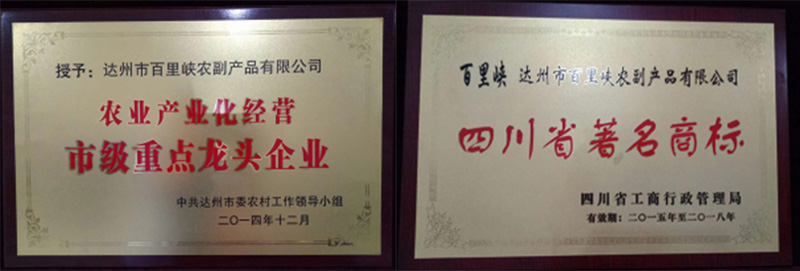 授予：达州市百里峡农副产品有限公司
农业产业化经营
市级重点龙头企业
中共达州市委农村工作领导小组
二〇一四年十二月
百里峡 达州市百里峡农副产品有限公司
四川省著名商标
四川省工商行政管理局
有效期：二〇一五年至二〇一八年